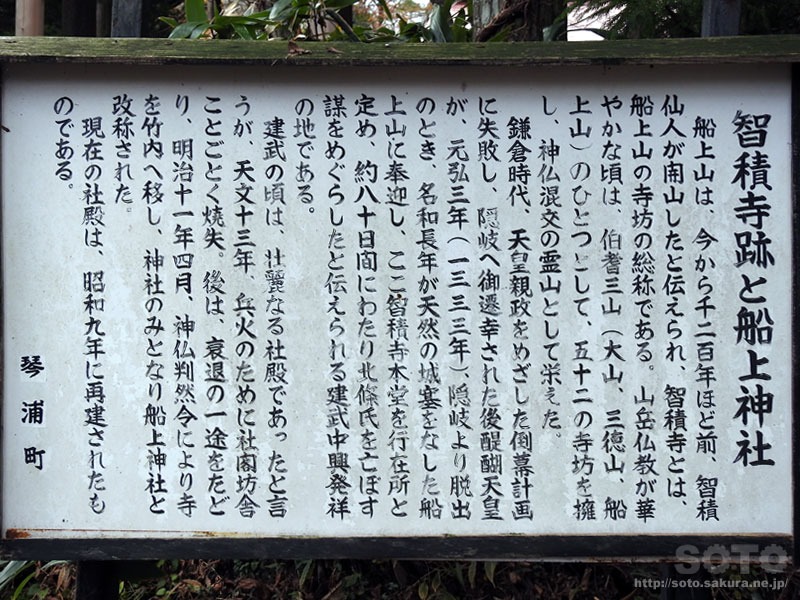 智積寺跡と船上神社
船上山は、今から千二百年ほど前、智積
仙人が南山したと伝えられ、智積寺とは、
船上山の寺坊の総称である。山岳仏教が華
やかな頃は、伯耆三山(大山、三徳山、船
上山)のひとつとして、五十二の寺坊を擁
し、神仏混交の霊山として栄えた。
鎌倉時代、天皇親政をめざした倒幕計画
に失敗し、隠岐へ御遷幸された後醍醐天皇
が、元弘三年(一三三三年)、隠岐より脱出
のとき、名和長年が天然の城塞をなした船
上山に奉迎し、ここ智積寺本堂を行在所と
定め、約八十日間にわたり北條氏を亡ぼす
謀をめぐらしたと伝えられる建武中興発祥
の地である。
建武の頃は、壮麗なる社殿であったと言
うが、天文十三年、兵火のために社閣坊舎
ことごとく焼失。後は、衰退の一途をたど
り、明治十一年四月、神仏判然令により寺
を竹内へ移し、神社のみとなり船上神社と
改称された。
現在の社殿は、昭和九年に再建されたも
のである。
琴浦町
SOTO
http://soto.sakura.ne.jp/